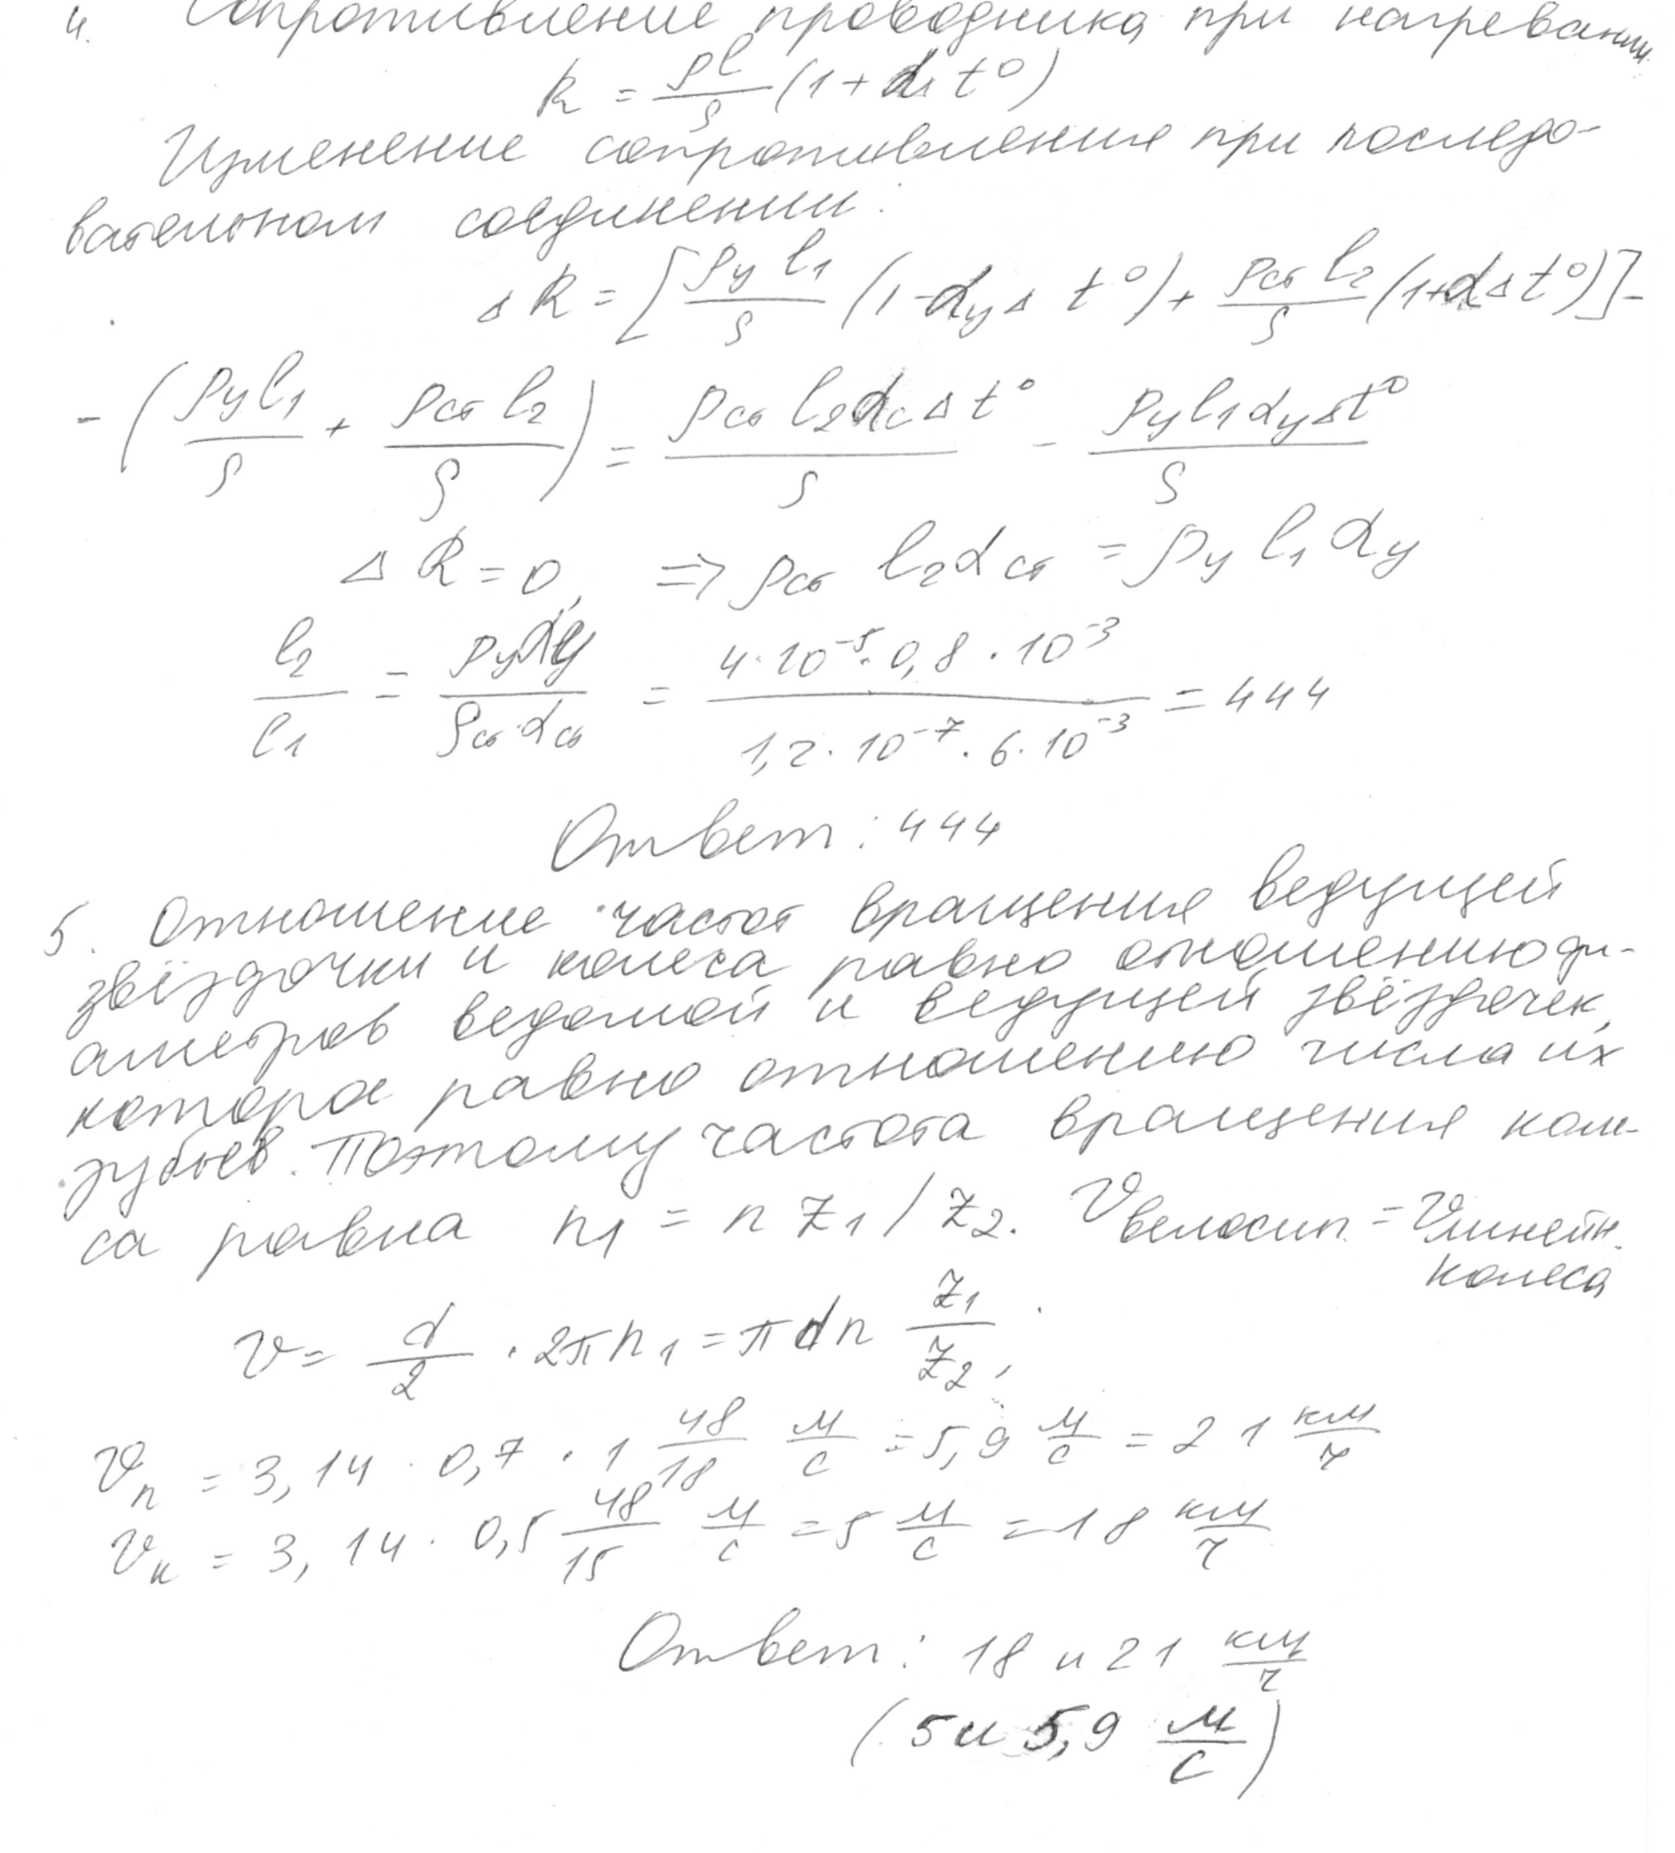 4. Сопротивление проводника при нагревании
R = ρl/S (1 + α Δ t°)
Изменение сопротивления при последо-
вательном соединении:
Δ R = [ρу l1/S (1 - αу Δ t°) + ρст l2/S (1 + α Δ t°)] -
- (ρу l1/S + ρст l2/S) = ρст l2 αс Δ t°/S - ρу l1 αу Δ t°/S
Δ R = 0, => ρст l2 αст = ρу l1 αу
l2/l1 = ρу αу/ρст · αст = 4 · 10⁻⁵ · 0,8 · 10⁻³/1,2 · 10⁻⁷ · 6 · 10⁻³ = 444
Ответ: 444
5. Отношение частот вращения ведущей
звёздочки и колеса равно отношению ди-
аметров ведомой и ведущей звёздочек,
которое равно отношению числа их
зубьев. Поэтому частота вращения коле-
са равна n1 = n z1 / z2. Vвелосип. = Vлинейн.
колеса
v = d/2 · 2πn1 = πdn z1/z2,
Vп = 3,14 · 0,7 · 1 48/18 м/с = 5,9 м/с = 21 км/ч
Vк = 3,14 · 0,5 48/15 м/с = 5 м/с = 18 км/ч
Ответ: 18 и 21 км/ч
(5 и 5,9 м/с)